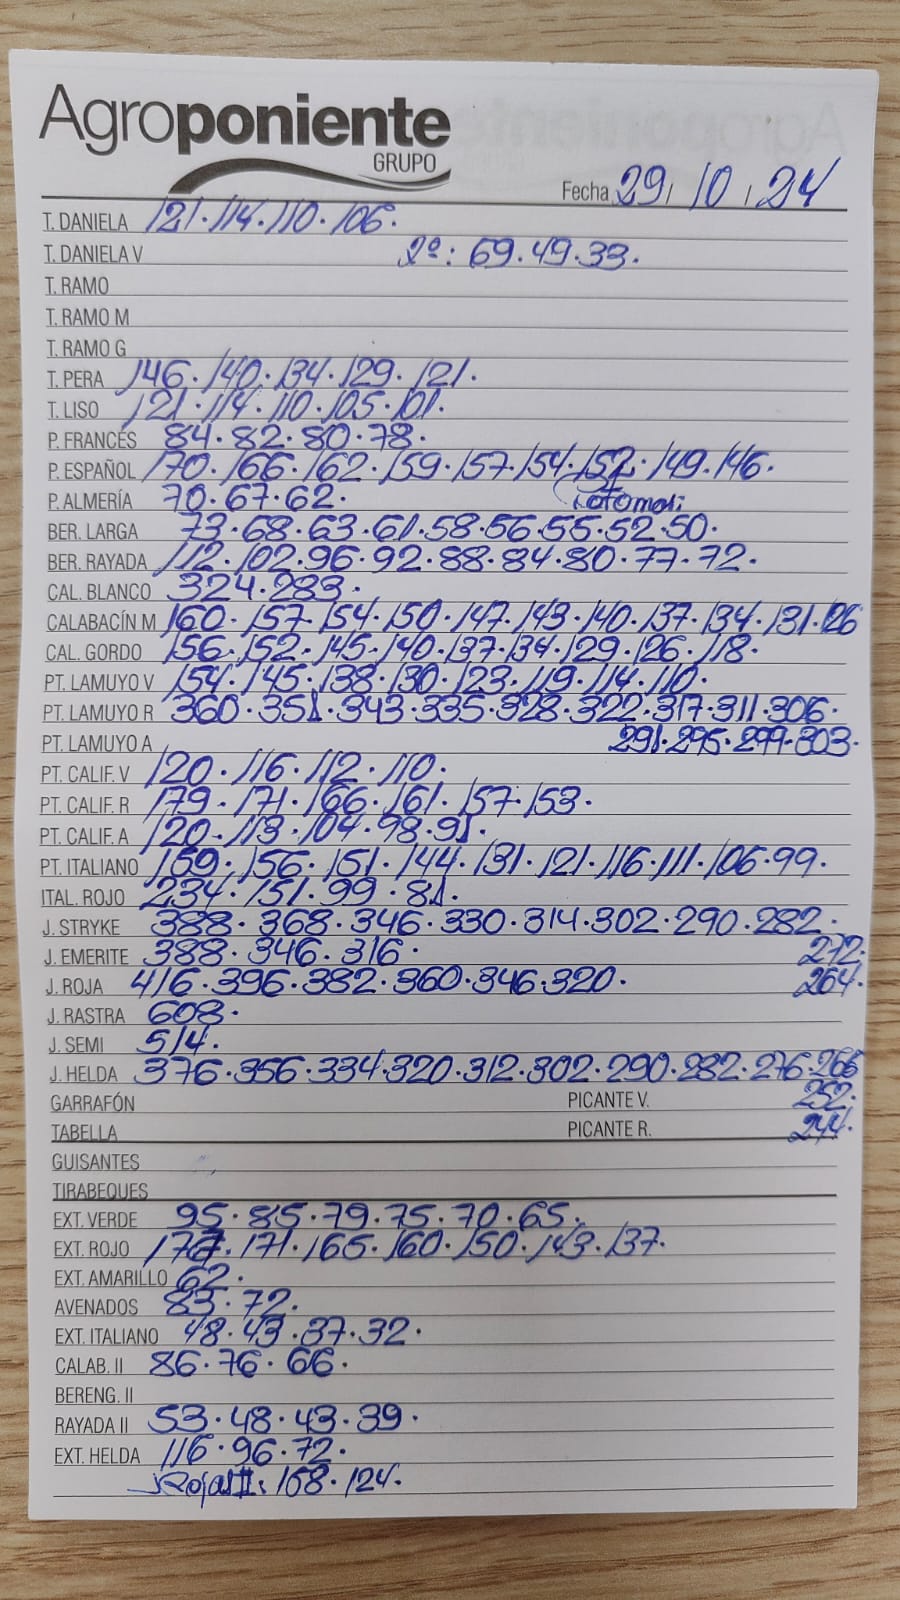 Agroponiente
GRUPO
Fecha 29/ 10 / 24
T. DANIELA 121·114·110·106·
T. DANIELA V 2º: 69·49·33·
T. RAMO
T. RAMO M
T. RAMO G
T. PERA 146·140·134·129·121·
T. LISO 121·114·110·105·101·
P. FRANCÉS 84·82·80·78·
P. ESPAÑOL 170·166·162·159·157·154·152·149·146·
P. ALMERÍA 70·67·62·
BER. LARGA 73·68·63·61·58·56·55·52·50·
BER. RAYADA 112·102·96·92·88·84·80·77·72·
CAL. BLANCO 324·283·
CALABACÍN M 160·157·154·150·147·143·140·137·134·131·126
CAL. GORDO 156·152·145·140·137·134·129·126·118·
PT. LAMUYO V 154·145·138·130·123·119·114·110·
PT. LAMUYO R 360·351·343·335·328·322·317·311·306·
PT. LAMUYO A 291·295·299·303·
PT. CALIF. V 120·116·112·110·
PT. CALIF. R 179·171·166·161·157·153·
PT. CALIF. A 120·113·104·98·91·
PT. ITALIANO 159·156·151·144·131·121·116·111·106·99·
ITAL. ROJO 234·151·99·81·
J. STRYKE 388·368·346·330·314·302·290·282·
J. EMERITE 388·346·316· 272·
J. ROJA 416·396·382·360·346·320· 264·
J. RASTRA 608·
J. SEMI 514·
J. HELDA 376·356·334·320·312·302·290·282·276·266
GARRAFÓN PICANTE V. 252·
TABELLA PICANTE R. 244·
GUISANTES
TIRABEQUES
EXT. VERDE 95·85·79·75·70·65·
EXT. ROJO 177·171·165·160·150·143·137·
EXT. AMARILLO 62·
AVENADOS 83·72·
EXT. ITALIANO 48·43·37·32·
CALAB. II 86·76·66·
BERENG. II
RAYADA II 53·48·43·39·
EXT. HELDA 116·96·72·
JRoja II: 158·124·